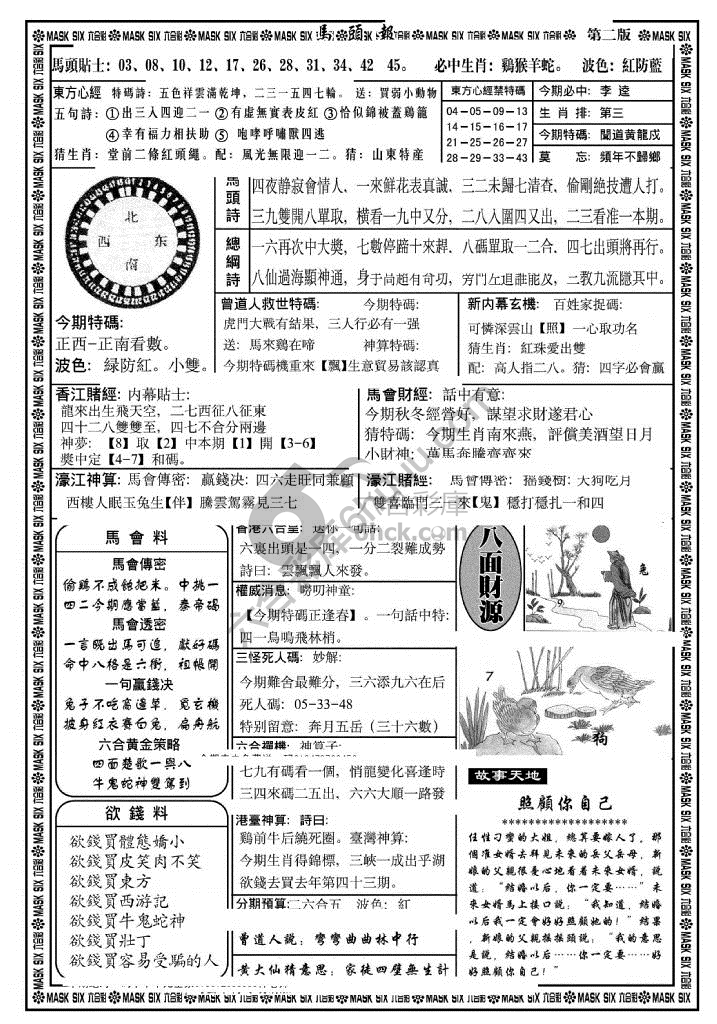 馬頭報 第二版
MASK SIX 六合彩
馬頭貼士：03、08、10、12、17、26、28、31、34、42 45。 必中生肖：鷄猴羊蛇。 波色：紅防藍
東方心經 特碼詩：五色祥雲滿乾坤，二三一五四七輪。送：買弱小動物
五句詩：①出三入四迎二一 ②有虛無實表皮紅 ③恰似錦被蓋鷄籠
④幸有福力相扶助 ⑤咆哮呼嘯獸四逃
猜生肖：堂前二條紅頭繩。配：風光無限迎一二。猜：山東特産
東方心經禁特碼
04－05－09－13
14－15－16－17
21－25－26－27
28－29－33－43
今期必中：李逵
生肖排：第三
今期特碼：聞道黄龍戍
莫忘：頻年不歸鄉
北
西 东
南
今期特碼：
正西-正南看數。
波色：緑防紅。小雙。
馬頭詩
四夜静寂會情人，一來鮮花表真誠，三二未歸七清查，偷剛絶技遭人打。
三九雙開八單取，横看一九中又分，二八入圍四又出，二三看准一本期。
總綱詩
一六再次中大奬，七數停蹄十來趕，八碼單取一二合，四七出頭將再行。
八仙過海顯神通，二教九流隱其中。
曾道人救世特碼： 今期特碼：
虎門大戰有結果，三人行必有一强
送：馬來鷄在啼 神算特碼：
今期特碼機重來【飄】生意貿易該認真
新内幕玄機： 百姓家捉碼：
可憐深雲山【照】一心取功名
猜生肖：紅珠愛出雙
配：高人指二八。猜：四字必會贏
香江賭經：内幕貼士：
龍來出生飛天空，二七西征八征東
四十二八雙雙至，四七不合分兩邊
神夢：【8】取【2】中本期【1】開【3-6】
奬中定【4-7】和碼。
馬會財經：話中有意：
今期秋冬經營好，謀望求財遂君心
猜特碼：今期生肖南來燕，評償美酒望日月
小財神：萬馬奔騰齊齊來
濠江神算：馬會傳密：贏錢决：四六走旺同兼顧
西樓人眠玉兔生【伴】騰雲駕霧見三七
濠江賭經： 馬曾傳密：摇錢樹：天狗吃月
雙喜臨門 來【鬼】穩打穩扎一和四
馬會料
馬會傳密
四二今期應當藍，泰帝碼
馬會透密
一言既出馬可追，獻好碼
命中八格是六衝，祖帳開
一句贏錢决
兔子不吃窩邊草，覓玄機
披身紅衣賽白兔，扁舟航
六合黄金策略
四面楚歌一與八
牛鬼蛇神雙駕到
欲錢料
欲錢買體態嬌小
欲錢買皮笑肉不笑
欲錢買東方
欲錢買西游記
欲錢買牛鬼蛇神
欲錢買壯丁
欲錢買容易受騙的人
香港六合皇：送你一句話：
六裏出頭是一四，一分二裂難成勢
詩曰：雲飄飄人來發。
權威消息：嘮叨神童：
【今期特碼正逢春】。一句話中特：
四一鳥鳴飛林梢。
三怪死人碼：妙解：
今期難舍最難分，三六添九六在后
死人碼：05-33-48
特别留意：奔月五岳（三十六數）
六合禪機：神算子：
七九有碼看一個，悄龍變化喜逢時
三四來碼二五出，六六大順一路發
港臺神算：詩曰：
鷄前牛后繞死圈。臺灣神算：
今期生肖得錦標，三峽一成出乎湖
欲錢去買去年第四十三期。
分期預算：二六合五 波色：紅
曾道人説：彎彎曲曲林中行
黄大仙猜意思：家徒四壁無生計
八面財源
兔
9
7
狗
故事天地
照顧你自己
********************
任性刁蠻的大姐，總算要嫁人了，那
個准女婿去拜見未來的岳父岳母，新
娘的父親很憂心地看着未來女婿，説
道：“結婚以后，你一定要……”未
來女婿馬上接口説：“我知道，結婚
以后我一定會好好照顧她的！”結果
，新娘的父親摇摇頭説：“我的意思
是説，結婚以后……你一定要……好
好照顧你自己！”